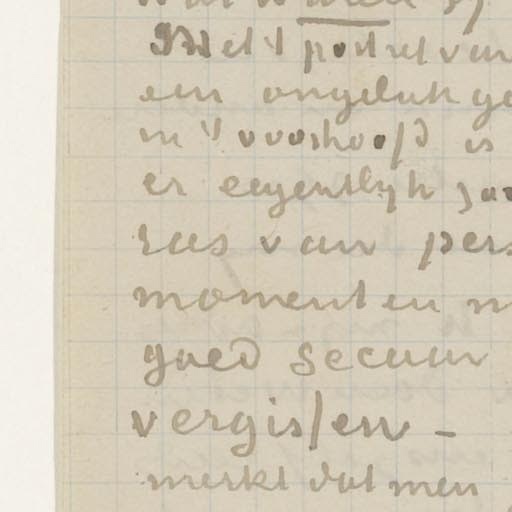 Met 't portret van
een ongeluk ge
in 't voorhoofd is
er eegentlyk
ras van pers
momenten n
goed secuur
vergissen –
merkt dat men